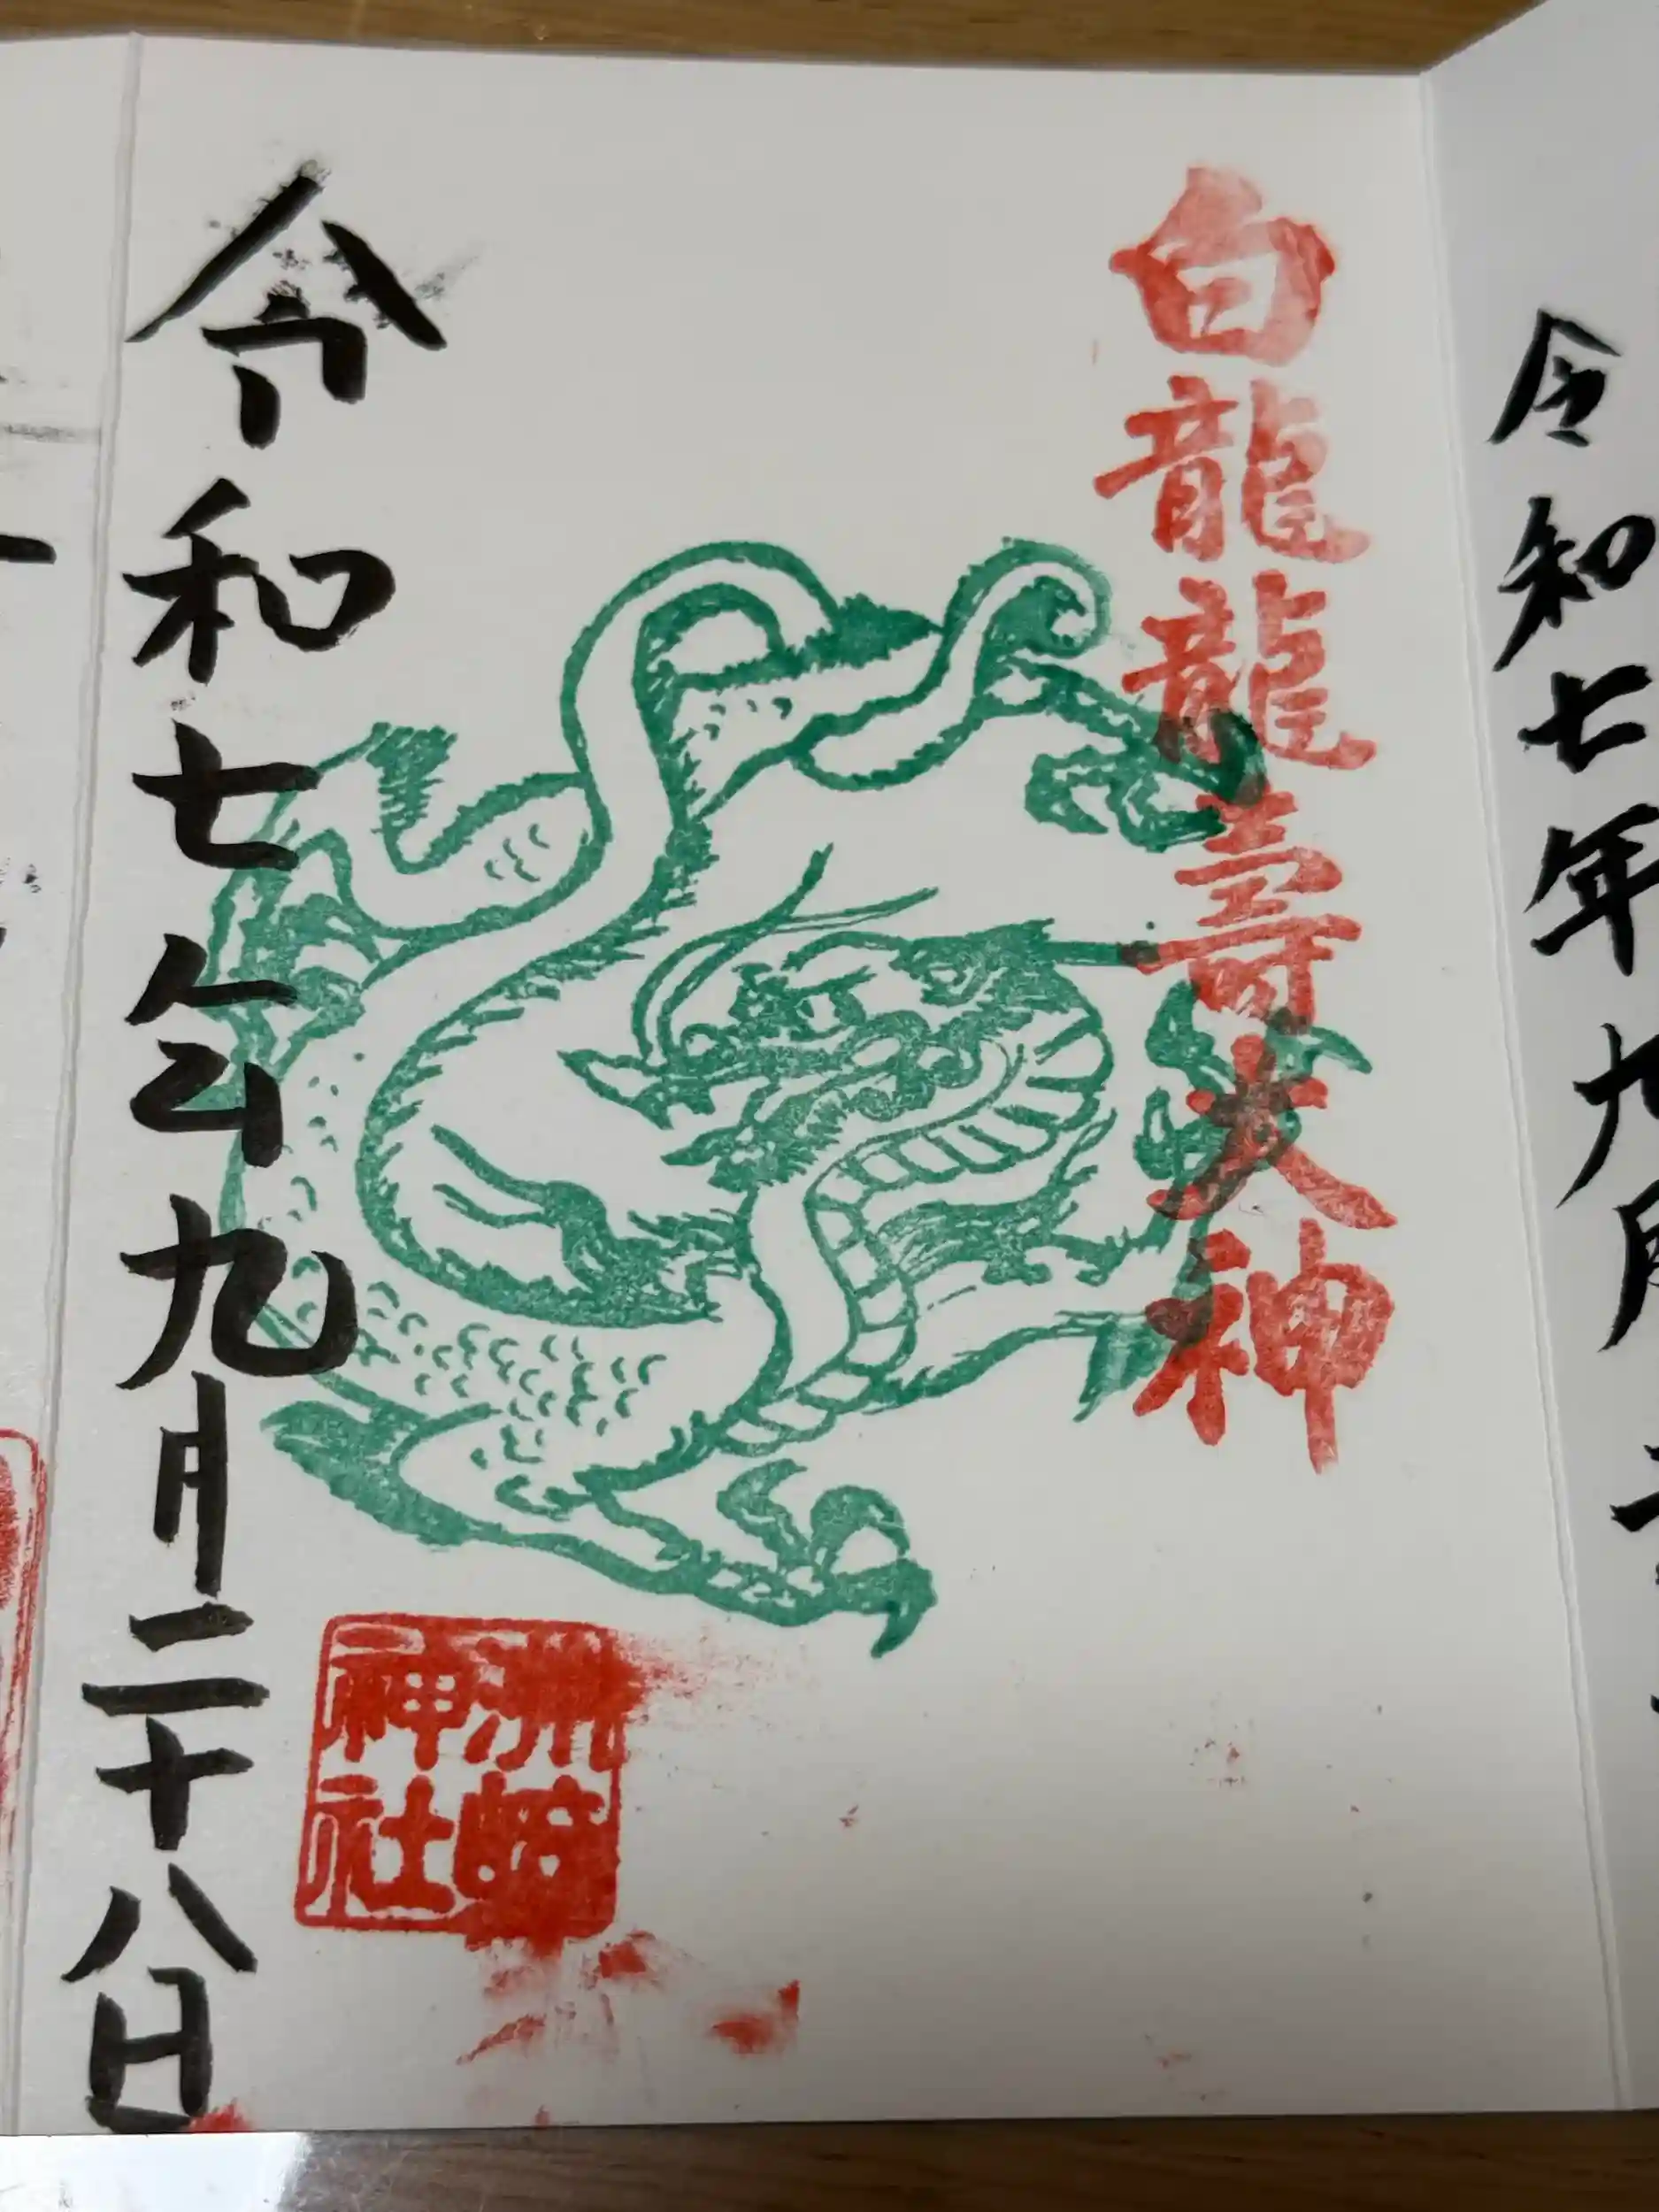 令和七年九月
白龍龍壽大神
令和七年九月二十八日
洲崎神社